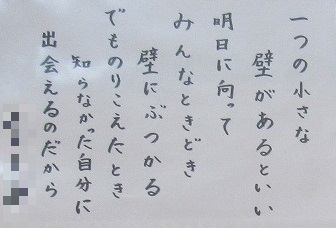 一つの小さな
壁があるといい
明日に向って
みんなときどき
壁にぶつかる
でものりこえたとき
知らなかった自分に
出会えるのだから